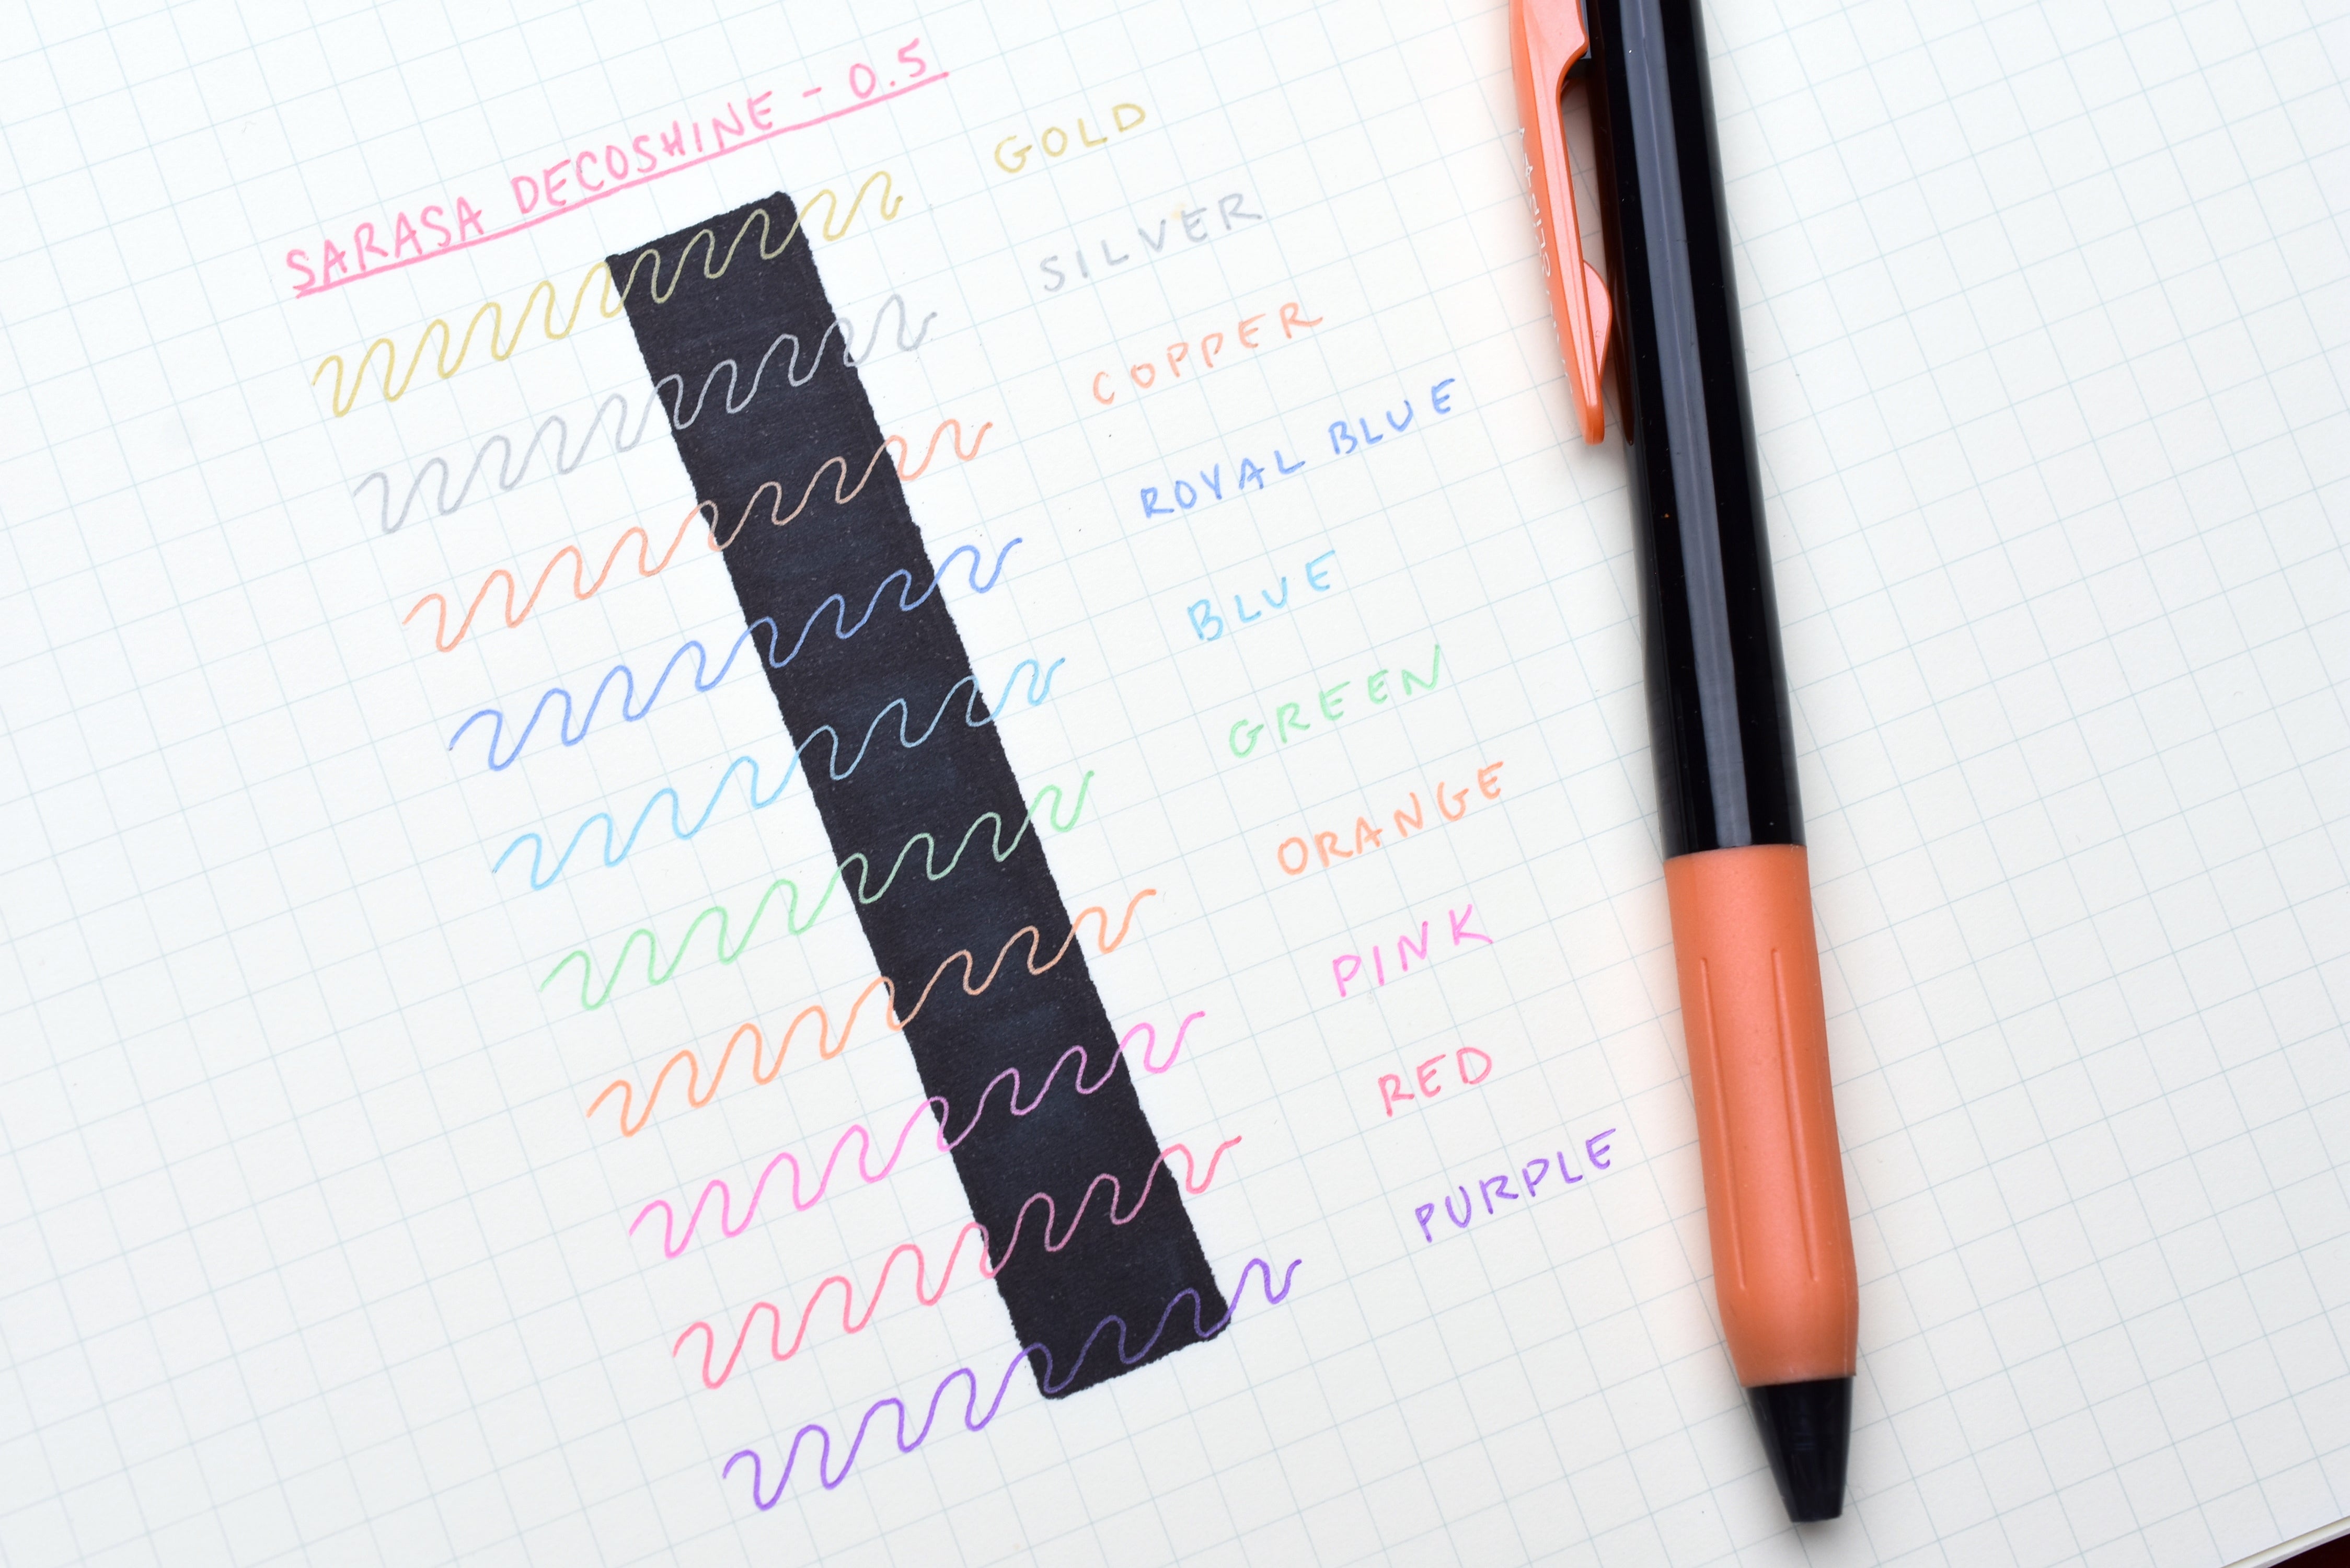 SARASA DECOSHINE - 0.5
GOLD
SILVER
COPPER
ROYAL BLUE
BLUE
GREEN
ORANGE
PINK
RED
PURPLE